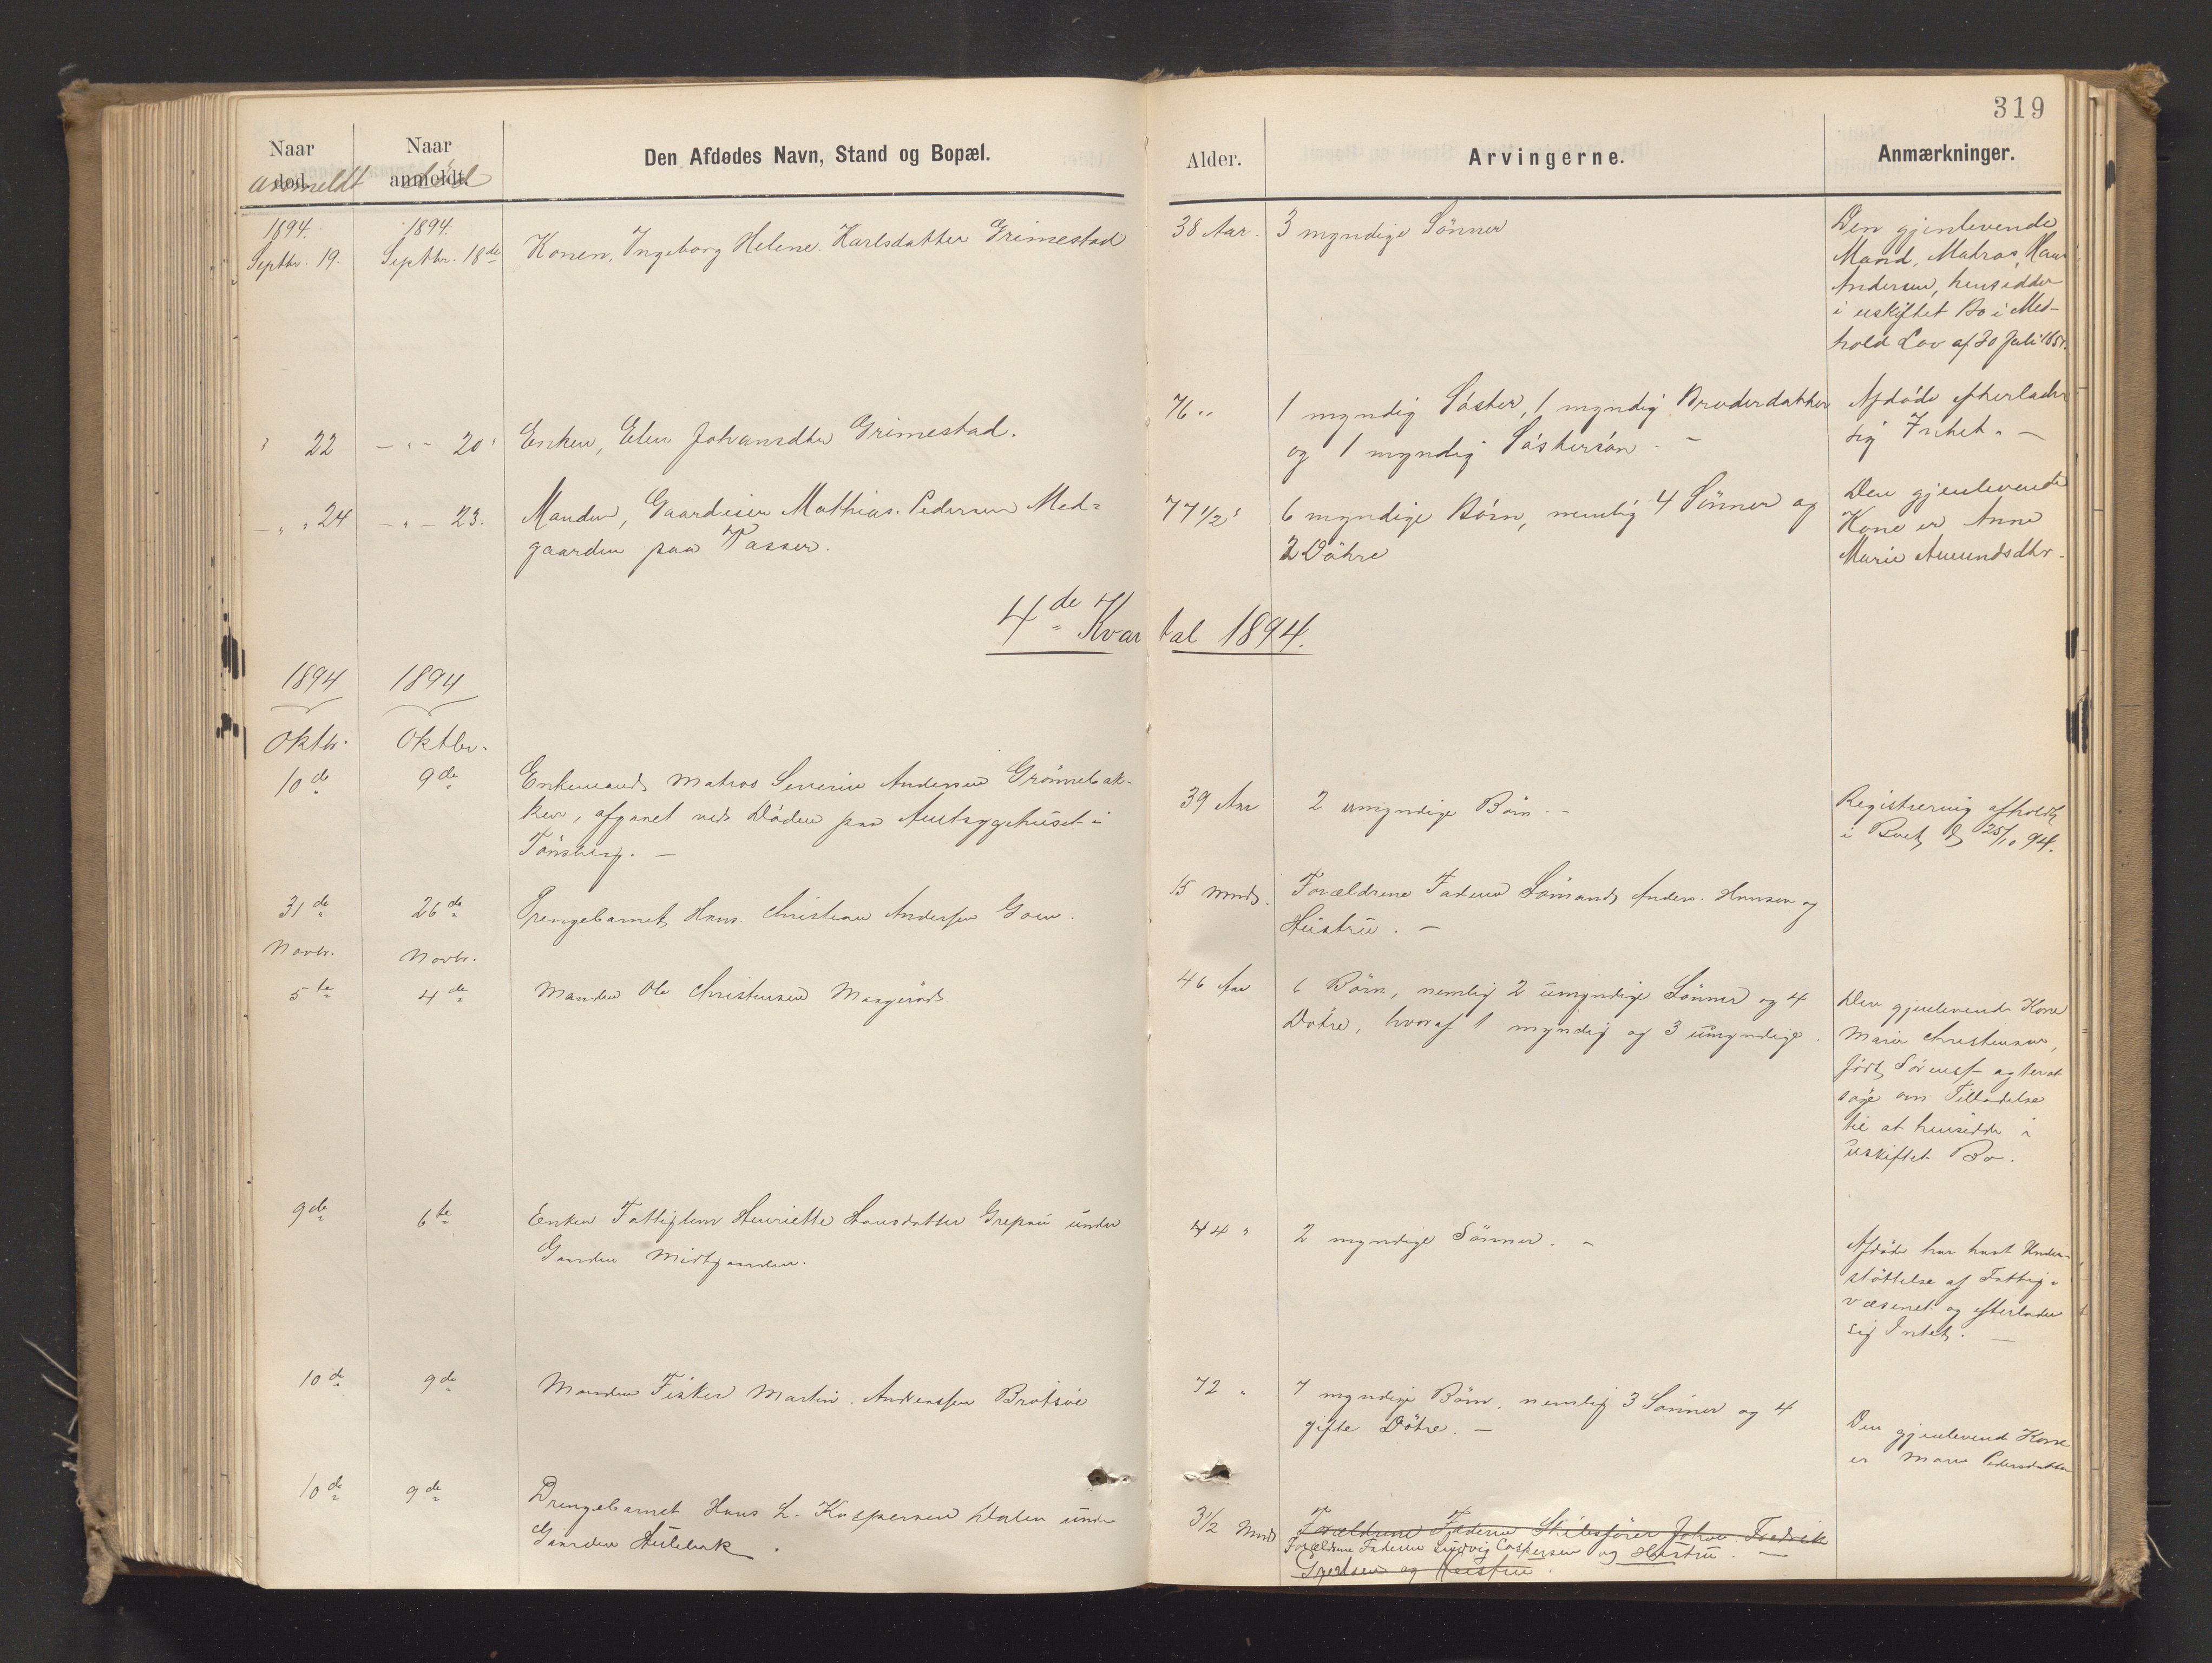 319
Naar død. anmeldt
Naar anmeldt. død
Den Afdødes Navn, Stand og Bopæl.
Alder.
Arvingerne.
Anmærkninger.
1894. Septbr. 19.
1894. Septbr. 18de
Konen, Ingeborg Helene Karlsdatter Grimestad
38 Aar.
3 myndige Sønner
Den gjenlevende
Mand, Matros Hans
Andersen, hensidder
i uskiftet Bo i Med-
hold Lov af 30 Juli 1851.
" 22
— " — 20
Enken, Elen Johansdtr Grimestad.
76 "
1 myndig Søster, 1 myndig Broderdatter
og 1 myndig Søstersøn. —
Afdøde efterlader
sig Intet. —
— " 24
— " — 23.
Manden, Gaardeier Mathias Pedersen Med=
gaarden paa Tasser.
77 1/2
6 myndige Børn, nemlig 4 Sønner og
2 Døtre
Den gjenlevende
Kone er Anne
Marie Amundsdtr.
4de Kvartal 1894.
1894
1894
Oktbr.
Oktbr.
10de
9de
Enkemand, Matros Severin Andersen Grønnebak-
ken, afgaaet ved Døden paa Amtsygehuset i
Tønsberg. —
39 Aar
2 umyndige Børn. —
Registrering afholdt
i Boet d 25/10 94.
31de
26de
Drengebarnet Hans Christian Andersen Goen.
15 Mnds.
Forældrene Faderen Sømand Anders Hansen og
Hustru. —
Novbr.
Novbr.
5te
4de
Manden Ole Christensen Maagerød
46 Aar
6 Børn, nemlig 2 umyndige Sønner og 4
Døtre, hvoraf 1 myndig og 3 umyndige.
Den gjenlevende Kone
Marie Christensen,
født Sørensd. agter at
søge om Tilladelse
til at hensidde i
uskiftet Bo.
9de
6te
Enken Fattiglem Henriette Hansdatter Grepan under
Gaarden Midtgaarden.
44 "
2 myndige Sønner. —
Afdøde har havt Under-
støttelse af Fattig-
væsenet og efterlader
sig Intet. —
10de
9de
Manden Fisker Martin Andreassen Brøtsøe
72 "
7 myndige Børn, nemlig 3 Sønner og 4
gifte Døtre. —
Den gjenlevende Kone
er Maren Pedersdatter
10de
9de
Drengebarnet Hans L. Kaspersen Dalen under
Gaarden Hulebak.
3 1/2 Mnds
Forældrene Faderen Skibsfører Johan Fredrik
Forældrene Faderen Ludvig Caspersen og Hustru. —
Gjertsen og Hustru.